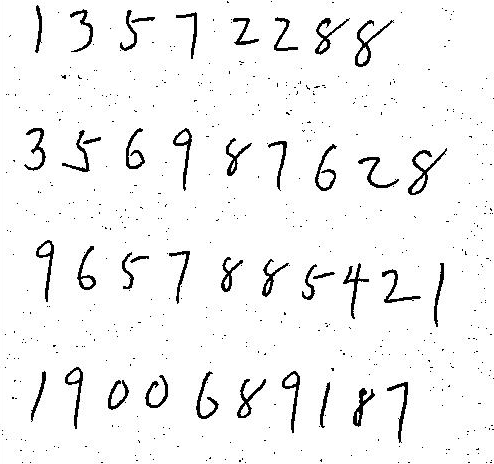 1 3 5 7 2 2 8 8
3 5 6 9 8 7 6 2 8
9 6 5 7 8 8 5 4 2 1
1 9 0 0 6 8 9 1 8 7